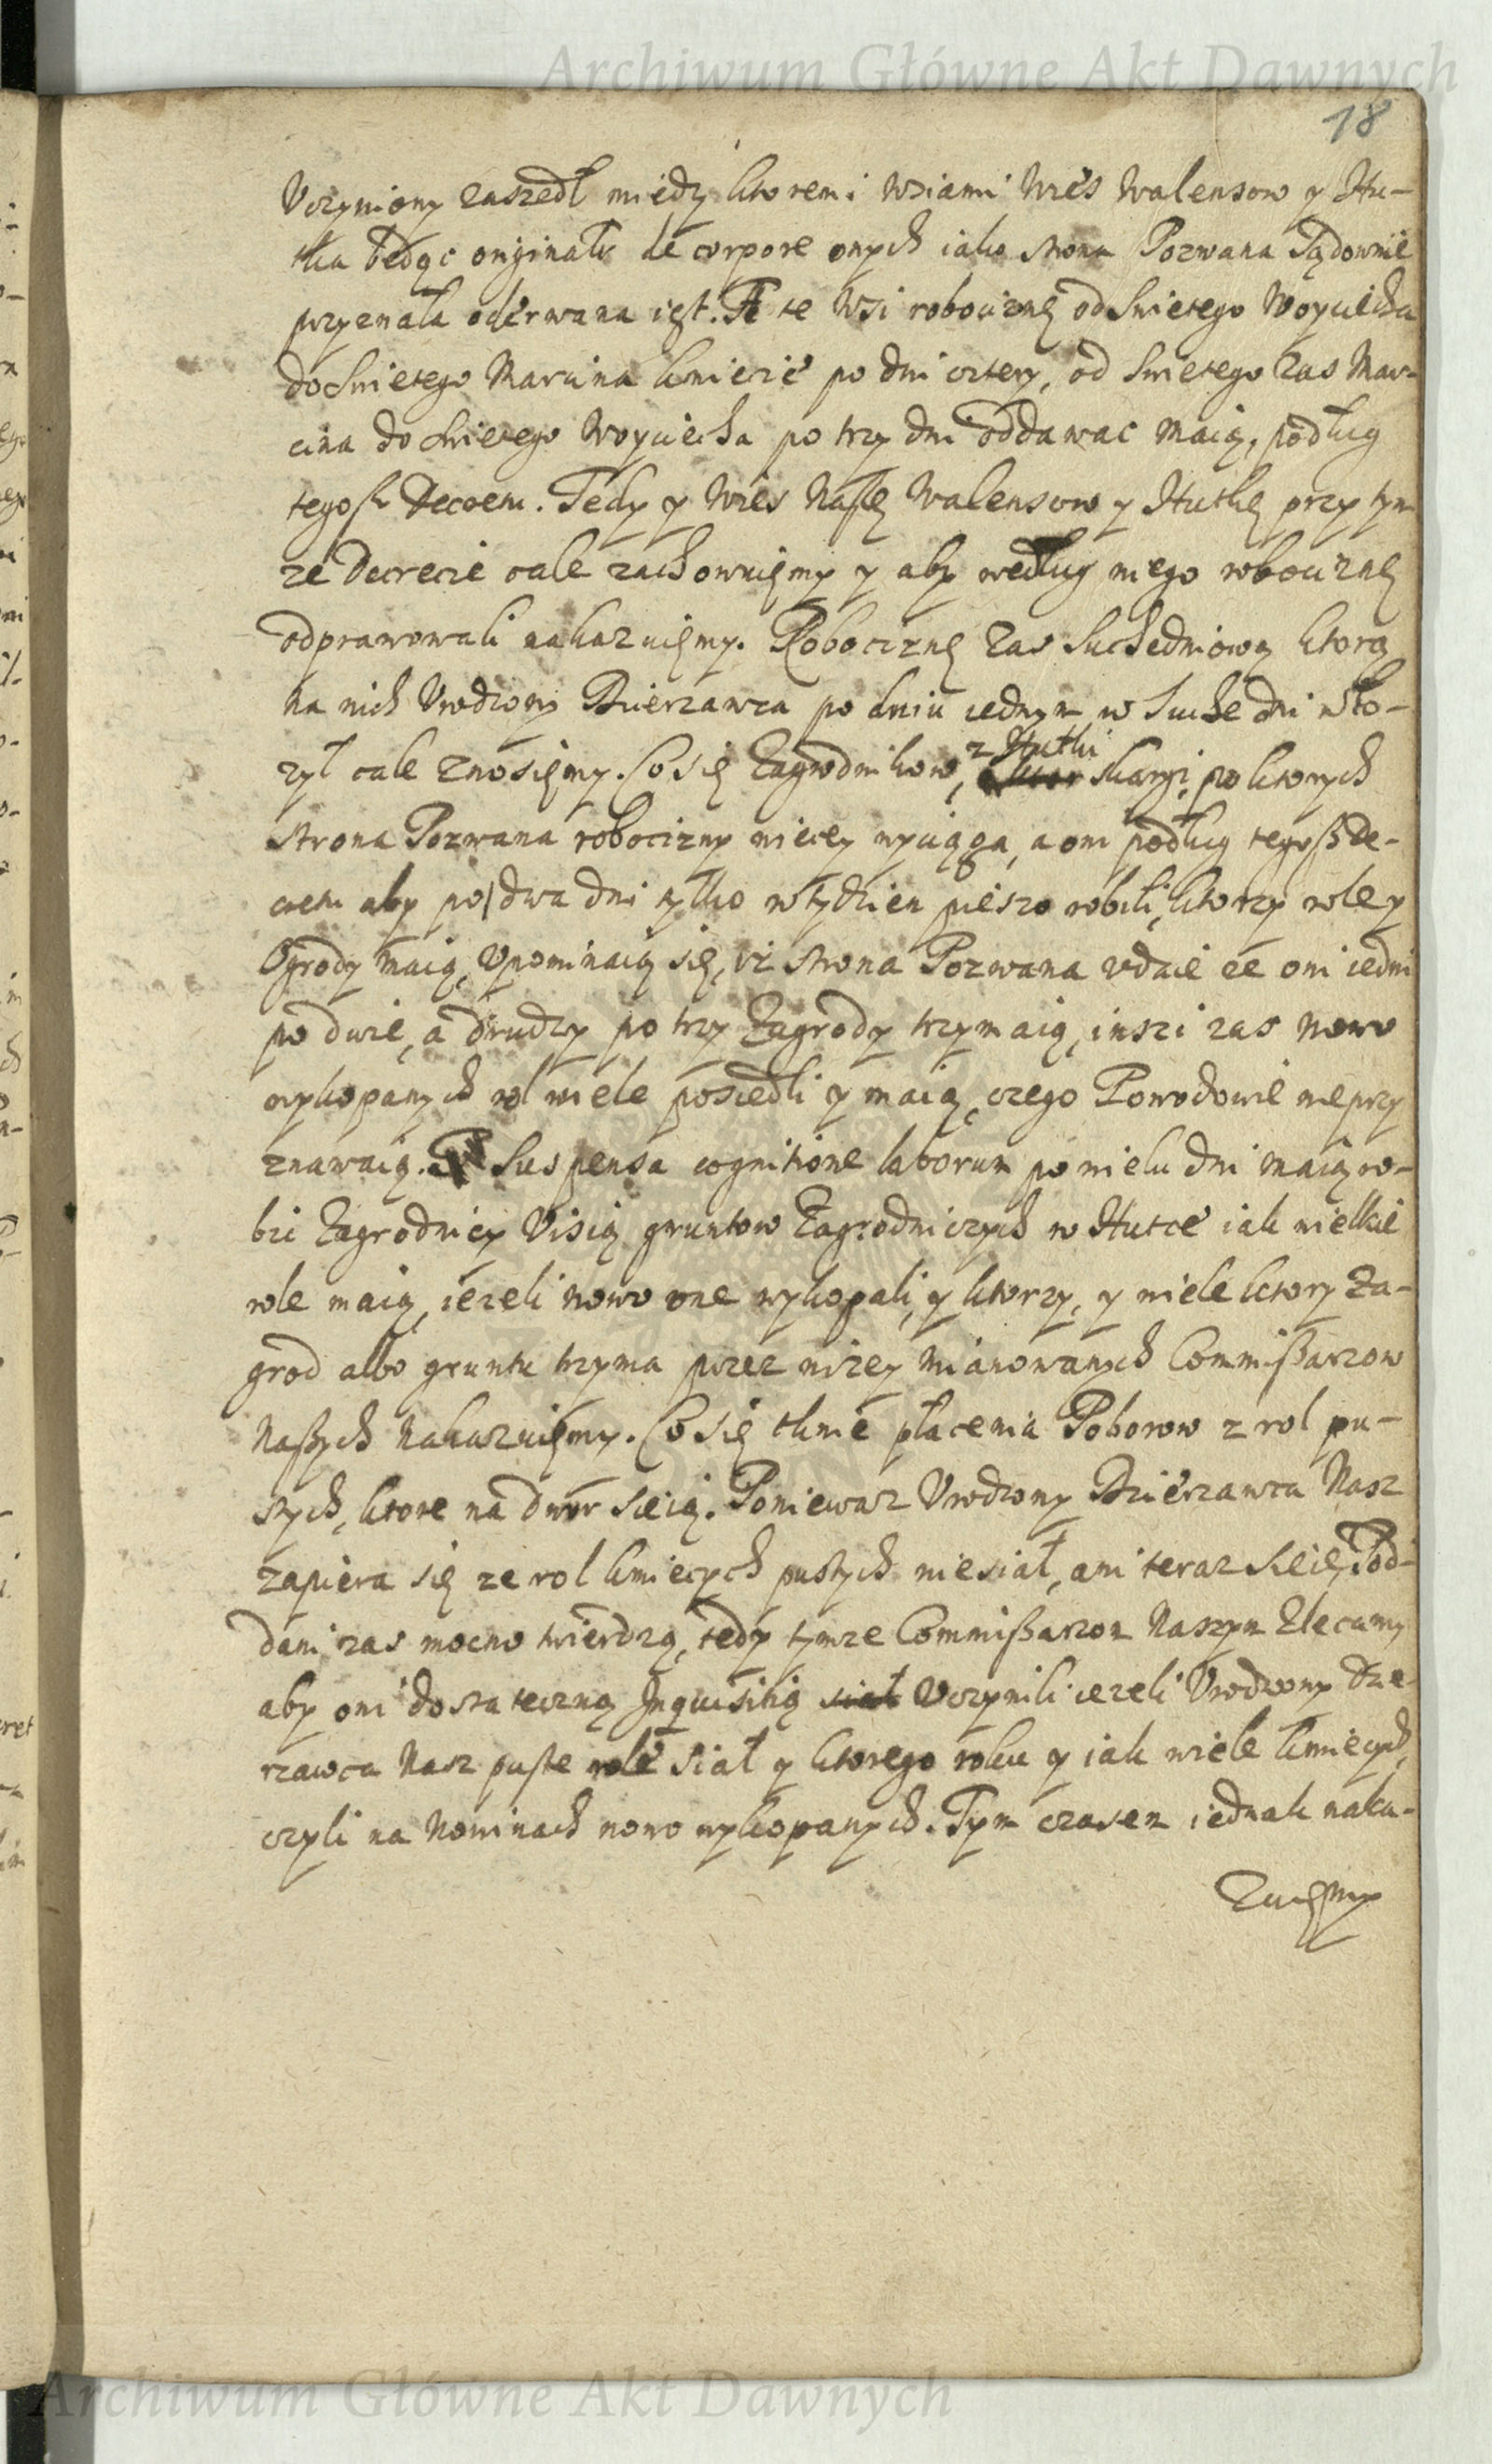 Archiwum Główne Akt Dawnych
18
Vczyniony zaszedł miedzy ktoremi wsiami wies Walensow y Hu-
tka będąc originalr de corpore onych iako strona Pozwana Sądownie
przyznała oderwana iest. A te wsi robociznę od Swietego Woyciecha
do Swietego Marcina kmiecie po dni cztery, od Swietego zas Mar-
cina do Swietego Woyciecha po trzy dni oddawac maią, podług
tegosz Decretu. Tedy y Wies Naszę Walensow y Hutkę przy tym
ze Decrecie cale zachowuięmy y aby według niego robociznę
odprawowali nakazuięmy. Robociznę zas Suchedniową ktorą
na nich Vrodzony Dzierzawca po dniu iednym w Suche dni wło-
zył cale znosięmy. Co się Zagrodnikow, z Hutki skargi, po ktorych
strona Pozwana robocizny wiecey wyciąga, a oni podług tegosz De-
cretu aby po dwa dni tylko w tydzien pieszo robili, ktorzy role y
Ogrody maią, vpominaią się, iz strona Pozwana vdaie ze oni iedni
po dwie, a drudzy po trzy Zagrody trzymaią, inszi zas nowo
wykopanych rol wiele posiedli y maią, czego Powodowie nie przy
znawaią. Suspensa cognitione laborum po wielu dni maią ro-
bic Zagrodnicy Visią gruntow Zagrodniczych w Hutce iak wielkie
role maią, iezeli nowo one wykopali, y ktorzy, y wiele ktory Za-
grod albo gruntu trzyma przez nizey mianowanych Commißarzow
Naszych Nakazuięmy. Co się tknie płacenia Poborow z rol pu-
stych, ktore na dwor sieią. Poniewaz Vrodzony Dzierzawca Nasz
zapiera się ze rol kmiecych pustych nie siał, ani teraz sieię, Pod-
dani zas mocno twierdzą, tedy tymze Commißarzom Naszym Zlecamy
aby oni dostateczną Inquisitią siał Vczynili iezeli Vrodzony Dzie-
rzawca Nasz puste role siał y ktorego roku y iak wiele kmiecych,
czyli na Nowinach nowo wykopanych. Tym czasem iednak naka-
zuięmy
Archiwum Główne Akt Dawnych